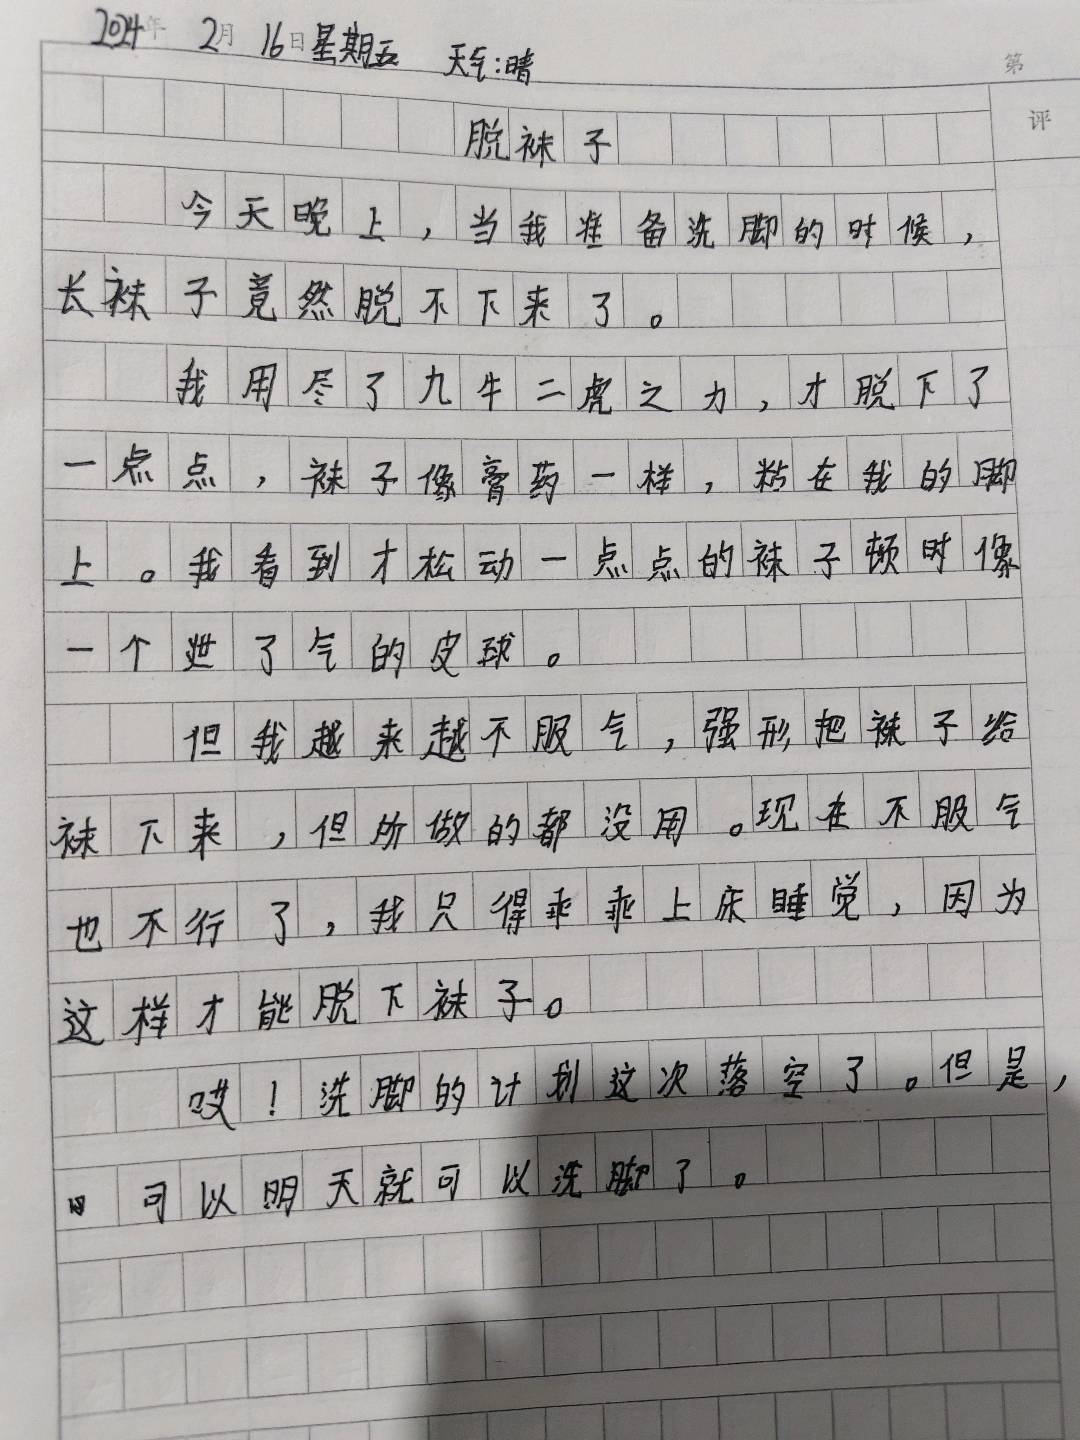 2024年 2月 16日星期五 天气:晴
第
评
脱袜子
今天晚上，当我准备洗脚的时候，
长袜子竟然脱不下来了。
我用尽了九牛二虎之力，才脱下了
一点点，袜子像膏药一样，粘在我的脚
上。我看到才松动一点点的袜子顿时像
一个泄了气的皮球。
但我越来越不服气，强形把袜子给
袜下来，但所做的都没用。现在不服气
也不行了，我只得乖乖上床睡觉，因为
这样才能脱下袜子。
哎！洗脚的计划这次落空了。但是，
可以明天就可以洗脚了。